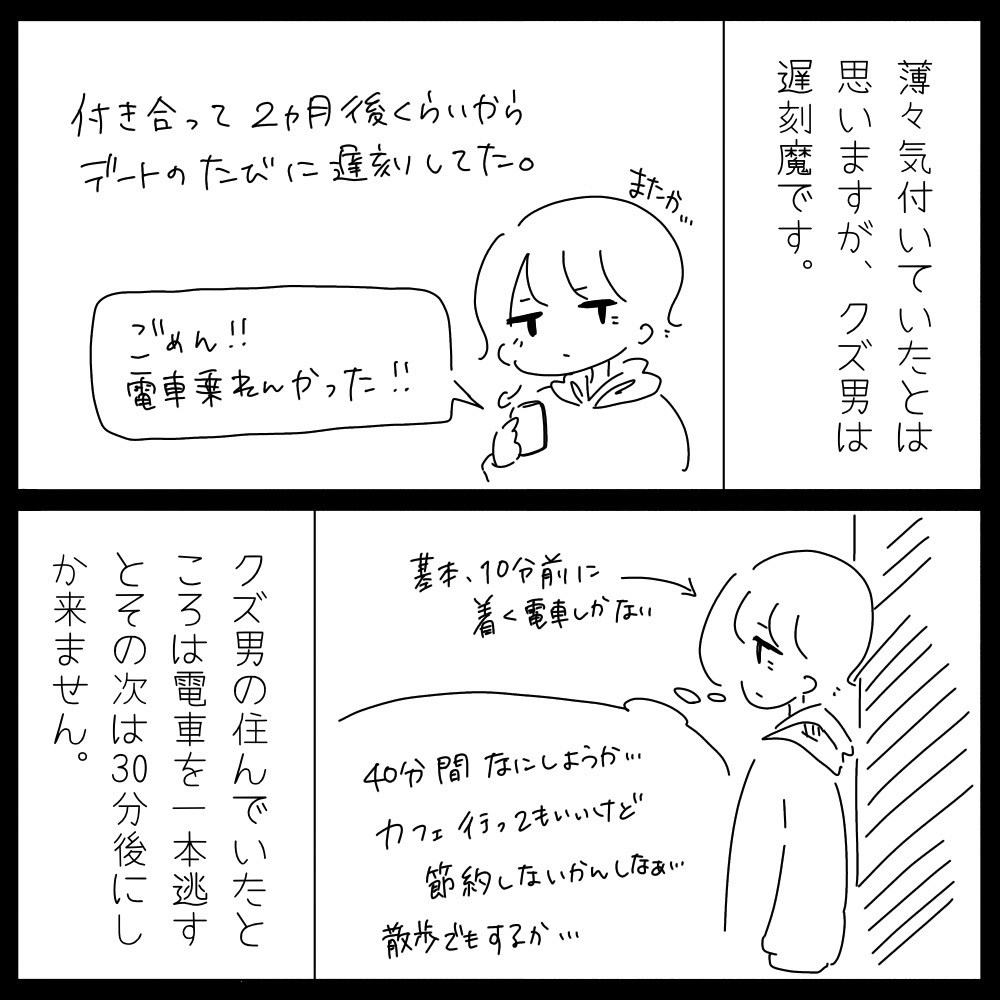 薄々気付いていたとは
思いますが、クズ男は
遅刻魔です。
付き合って2ヵ月後くらいから
デートのたびに遅刻してた。
またか…
ごめん!!
電車乗れんかった!!
基本、10分前に
着く電車しかない
40分間なにしようか…
カフェ行ってもいいけど
節約しないかんしなぁ…
散歩でもするか…
クズ男の住んでいたと
ころは電車を一本逃す
とその次は30分後にし
か来ません。